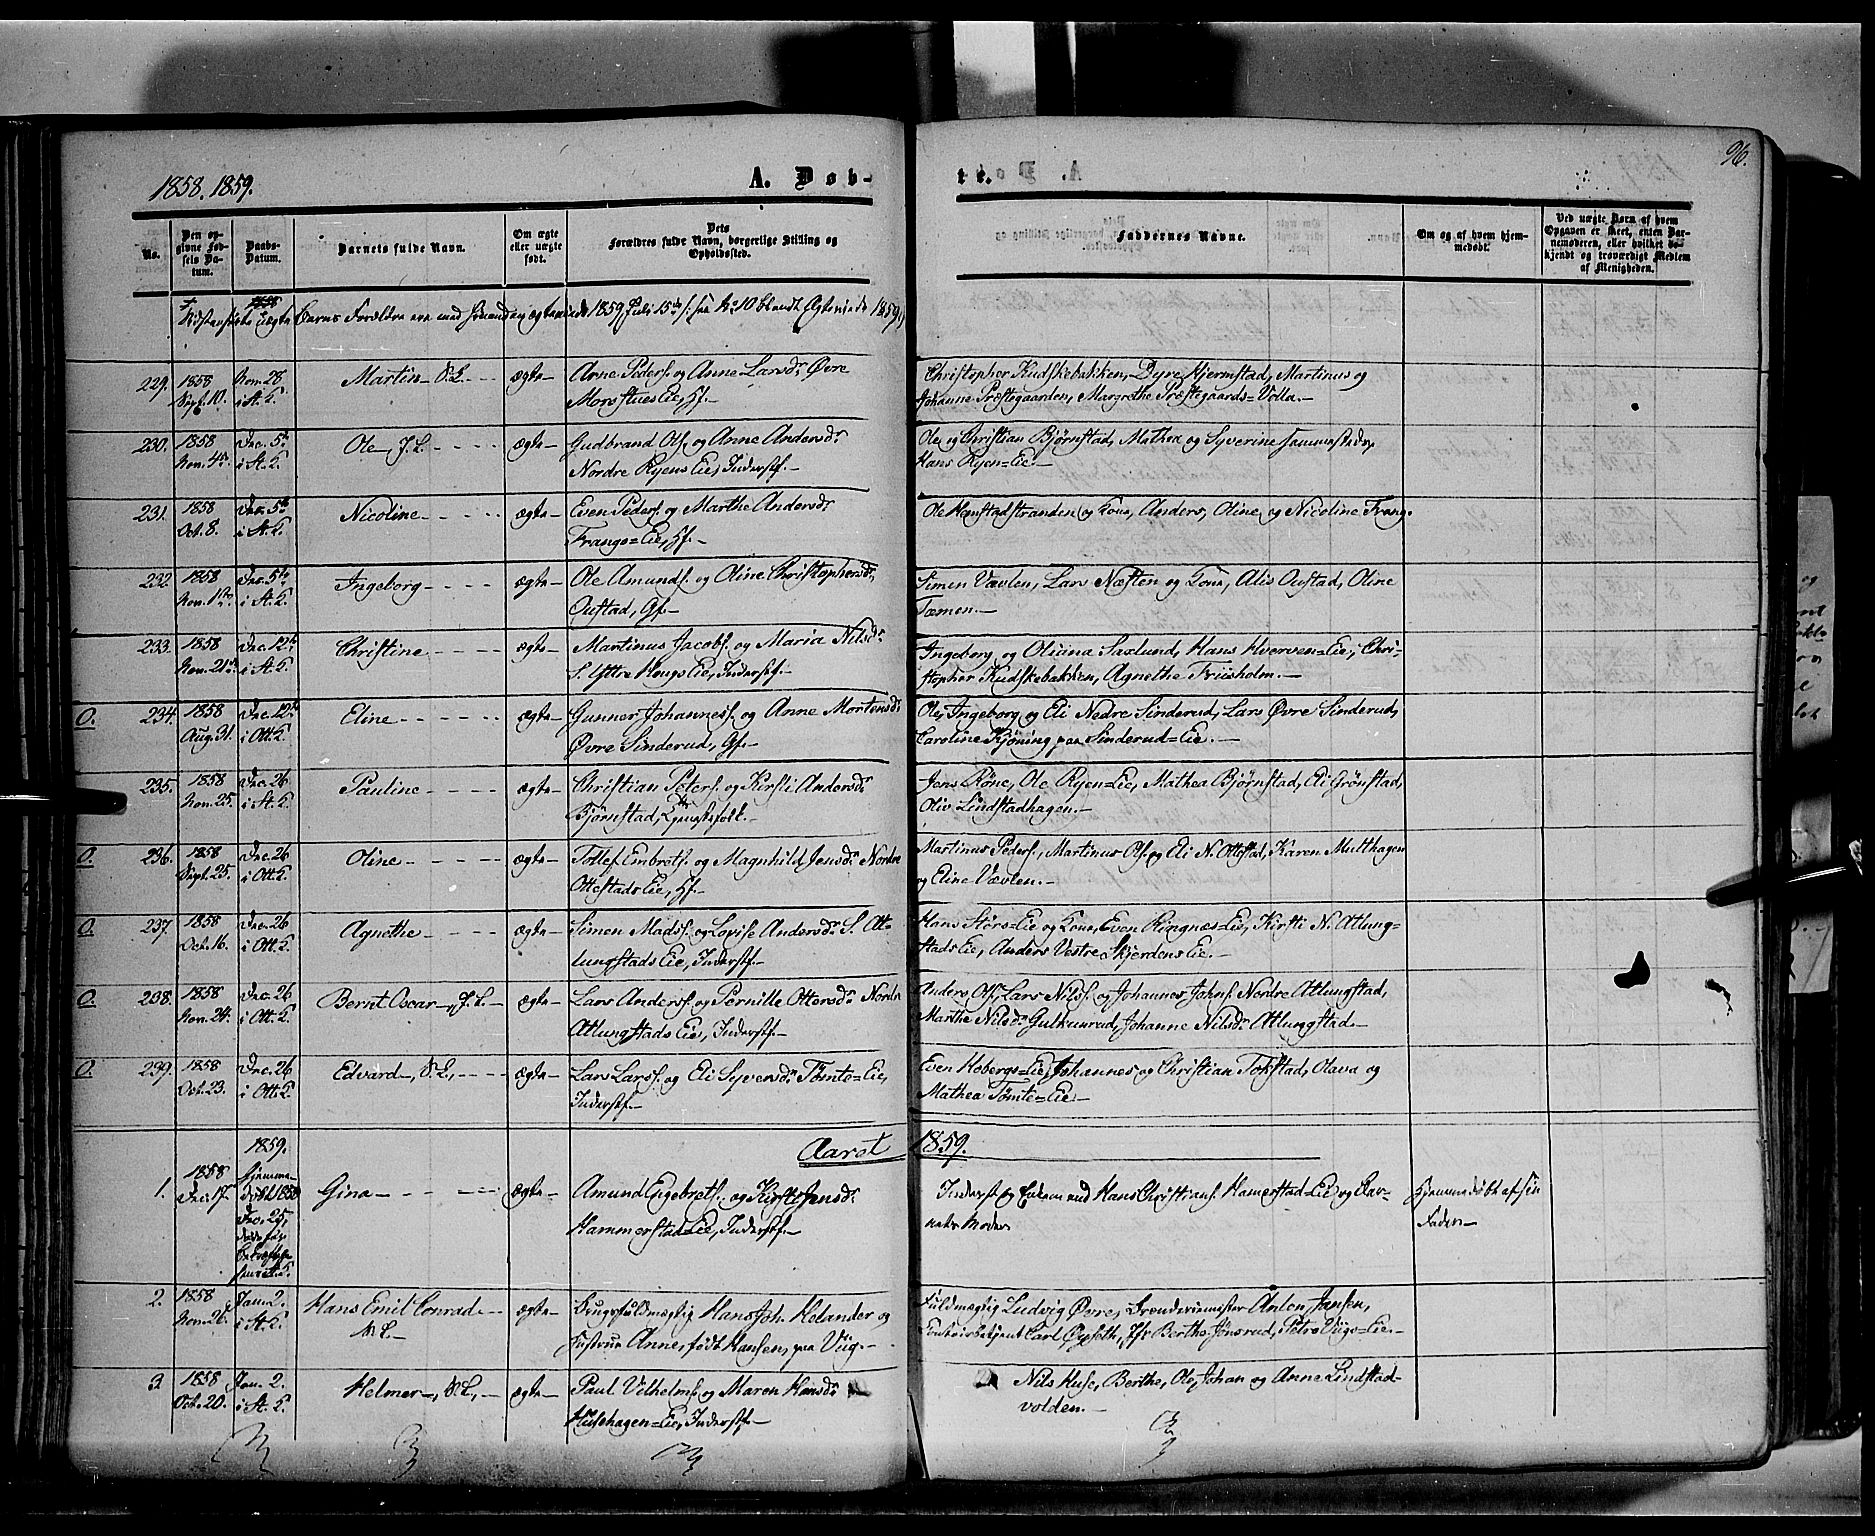 1858. 1859.
A. Døb-
te.
96.
No.
Den op-
givne Fød-
sels Da-
tum.
Daabs-
Datum.
Barnets fulde Navn.
Om ægte
eller uægte
født.
Dets
Forældres fulde Navn, borgerlige Stilling og
Opholdssted.
Faddernes Navne.
Om og af hvem hjem-
medøbt.
Ved uægte Børn af hvem
Opgaven er skeet, enten Bar-
nemoderen, eller hvilket be-
kjendt og troværdigt Medlem
af Menigheden.
uægte Barns Forældre ere med hinanden ægteviede 1859 Juli 15de s: see No 10 blandt Ægteviede 1859.
229. 1858 Sept. 10. Nov. 28 i St. K. Martin, V.L. ægte Arne Peders. og Anne Larsdr. Øvre
Morstues Eie, Hf.
Christopher Kudskebakken, Dyre Hjermstad, Martinus og
Johanne Præstegaarden, Margrethe Præstegaards=Volla.
230. 1858 Nov. 4de Dec. 5te i St. K. Ole, J.L. ægte Gudbrand Ols. og Anne Andersdr.
Nordre Ryens Eie, Inderstf.
Ole og Christian Bjørnstad, Mathea og Syverine sammesteds,
Hans Ryen=Eie.
231. 1858 Oct. 8. Dec. 5te i St. K. Nicoline ægte Even Peders. og Marthe Andersdr.
Frangs=Eie, Hf.
Ole Hemstadstranden og Kone, Anders, Oline og Nicoline Frang.
232. 1858 Nov. 1ste Dec. 5te i St. K. Ingeborg ægte Ole Amunds. og Oline Christophersdr.
Oustad, Gf.
Simen Vævlen, Lars Næsten og Kone, Alis Oustad, Oline
Tæmen.
233. 1858 Nov. 21de Dec. 12te i St. K. Christine ægte Martinus Jacobs. og Maria Nilsdr.
S. Yttre Haugs Eie, Inderstf.
Ingeborg og Oliana Saxlund, Hans Hverven=Eie, Chri-
stopher Kudskebakken, Agnethe Friisholm.
O. 234. 1858 Aug. 31. Dec. 12te i Ott. K. Eline ægte Gunner Johanness. og Anne Mortensdr.
Øvre Sinderud, Gf.
Ole, Ingeborg og Eli Nedre Sinderud, Lars Øvre Sinderud,
Caroline Kjøning paa Sinderud=Eie.
235. 1858 Nov. 25. Dec. 26 i St. K. Pauline ægte Christian Peters. og Kirsti Andersdr.
Bjørnstad, Tjenestefolk.
Jens Røne, Ole Ryen=Eie, Mathea Bjørnstad, Eli Grønstad,
Oliv Lindstadhagen.
O. 236. 1858 Sept. 25. Dec. 26 i Ott. K. Oline ægte Tollef Embrets. og Magnhild Jensdr. Nordre
Ottestads Eie, Hf.
Martinus Peders., Martinus Ols. og Eli N. Ottestad, Karen Multhagen
og Eline Vævlen.
O. 237. 1858 Oct. 16. Dec. 26 i Ott. K. Agnethe ægte Simen Mads. og Lovise Andersdr. S. At-
lungstads Eie, Inderstf.
Hans Størs=Eie og Kone, Even Ringnes=Eie, Kirsti N. Atlung-
stads Eie, Anders Vestre Skjerdens Eie.
O. 238. 1858 Nov. 24. Dec. 26 i Ott. K. Bernt Oscar, J.L. ægte Lars Anders. og Pernille Ottersdr. Nordre
Atlungstads Eie, Inderstf.
Anders Ols., Lars Nils. og Johannes Johns. Nordre Atlungstad,
Marthe Nilsdr. Gulkunrud, Johanne Nilsdr. Atlungstad.
O. 239. 1858 Oct. 23. Dec. 26 i Ott. K. Edvard, V.L., ægte Lars Lars. og Eli Syversdr. Tømte=Eie,
Inderstf.
Even Hobergs=Eie, Johannes og Christian Tokstad, Olava og
Mathea Tømte=Eie.
Aaret 1859.
1. 1858 Dec. 17. 1859. Hjemme-
døbt 1858
Dec. 25,
Gina ægte Amund Engebrets. og Kirsti Jensdr.
Hammerstad=Eie, Inderstf.
Inderst og Enkemand Hans Christians. Hamerstad Eie og Bar-
nets Moder
Hjemmedøbt af sin
Fader
2. 1858 Nov. 26. Jan. 2. i St. K. Hans Emil Conrad
V.L. ægte Brugsfuldmægtig Hans Joh. Helander og
Hustrue Anne, født Hansen, paa Viig.
Fuldmægtig Ludvig Øvre, Brænderimester Anton Jansen,
Contoirbetjent Carl Øyseth, Jfr Berthe Jønsrud, Petra Viigs=Eie.
3. 1858 Oct. 20. Jan. 2. i St. K. Helmer, V.L., ægte Paul Vilhelms. og Maren Hansdr.
Husehagen=Eie, Inderstf.
Nils Huse, Berthe, Ole, Johan og Anne Lindstad-
volden.